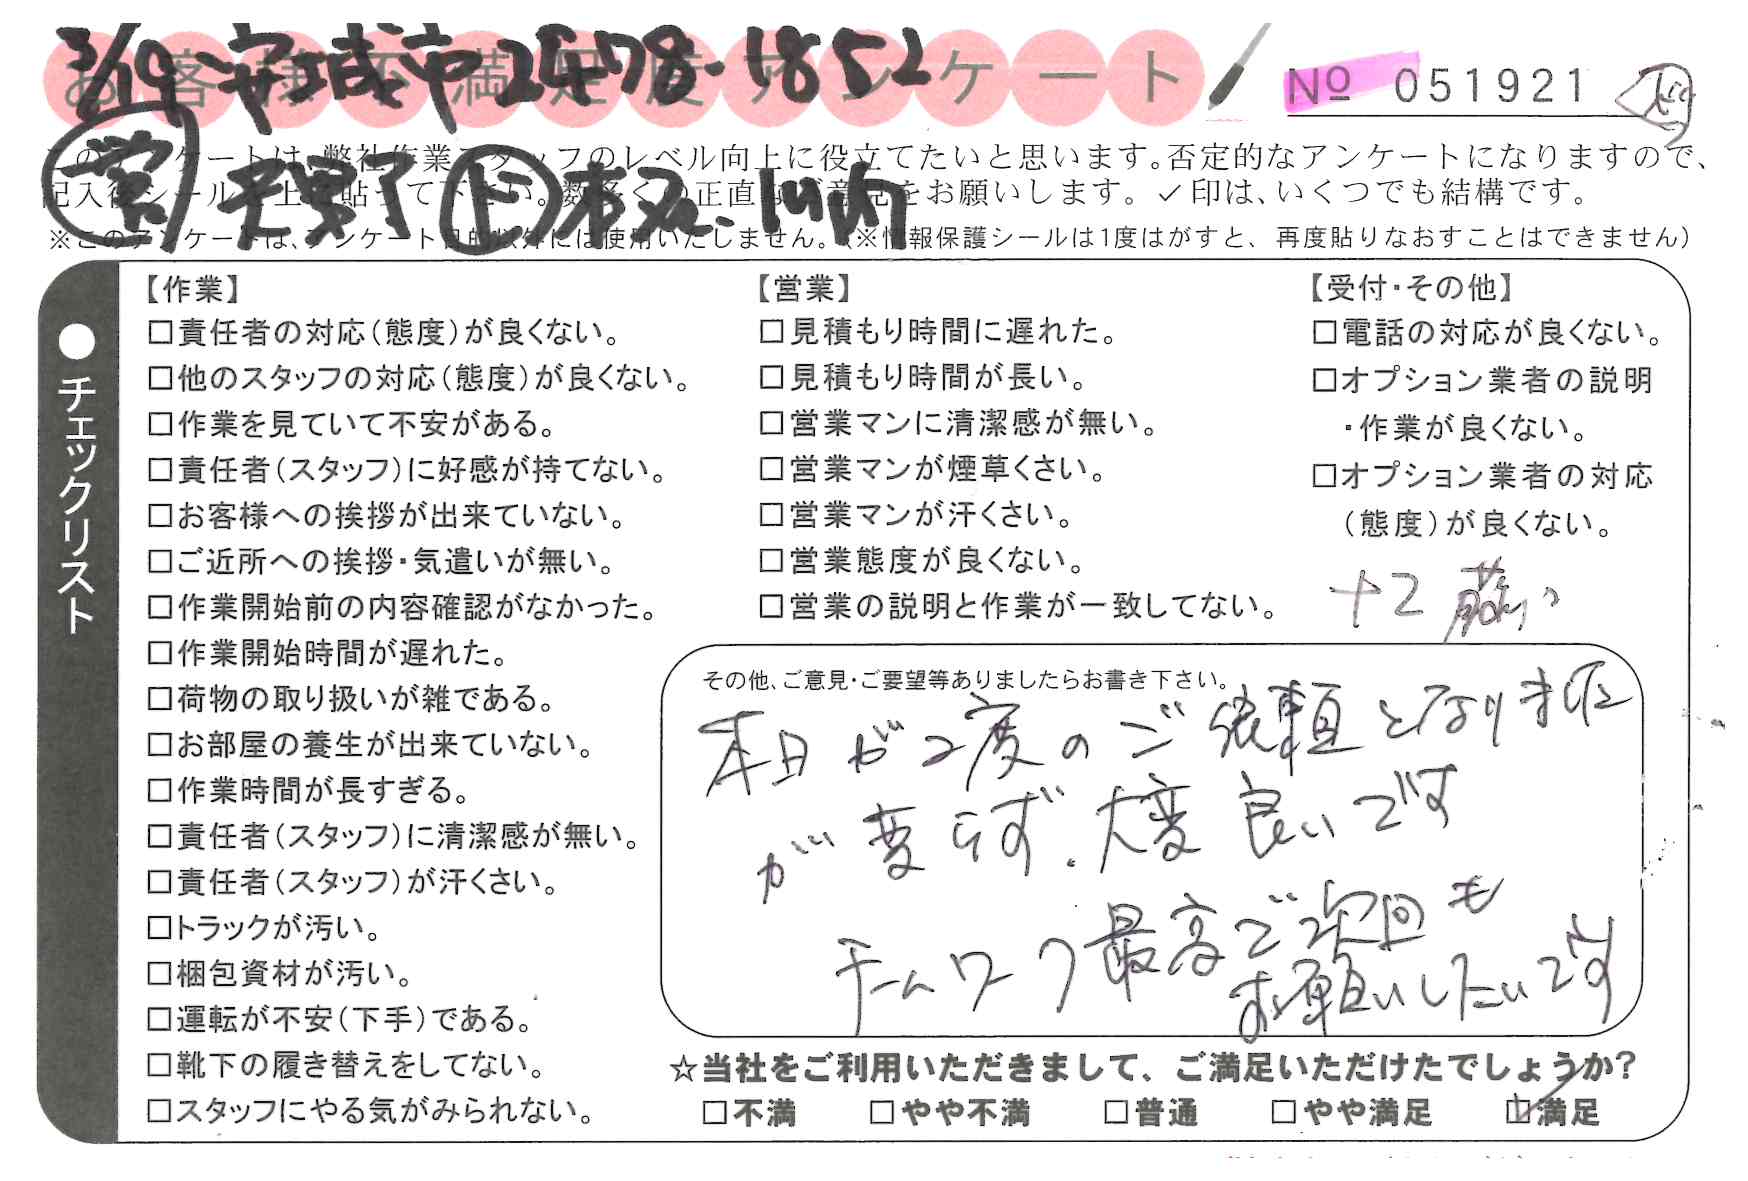 3/19 安城市 2478-1852
お客様不満足度アンケート
№ 051921
営 ド 本又. 川内
このアンケートは、弊社作業スタッフのレベル向上に役立てたいと思います。否定的なアンケートになりますので、
記入後シールを上に貼って下さい。数多くの正直なご意見をお願いします。✓印は、いくつでも結構です。
※このアンケートは、アンケート目的以外には使用いたしません。(※情報保護シールは1度はがすと、再度貼りなおすことはできません)
●チェックリスト
【作業】
□責任者の対応(態度)が良くない。
□他のスタッフの対応(態度)が良くない。
□作業を見ていて不安がある。
□責任者(スタッフ)に好感が持てない。
□お客様への挨拶が出来ていない。
□ご近所への挨拶・気遣いが無い。
□作業開始前の内容確認がなかった。
□作業開始時間が遅れた。
□荷物の取り扱いが雑である。
□お部屋の養生が出来ていない。
□作業時間が長すぎる。
□責任者(スタッフ)に清潔感が無い。
□責任者(スタッフ)が汗くさい。
□トラックが汚い。
□梱包資材が汚い。
□運転が不安(下手)である。
□靴下の履き替えをしてない。
□スタッフにやる気がみられない。
【営業】
□見積もり時間に遅れた。
□見積もり時間が長い。
□営業マンに清潔感が無い。
□営業マンが煙草くさい。
□営業マンが汗くさい。
□営業態度が良くない。
□営業の説明と作業が一致してない。
【受付・その他】
□電話の対応が良くない。
□オプション業者の説明
・作業が良くない。
□オプション業者の対応
(態度)が良くない。
+2
その他、ご意見・ご要望等ありましたらお書き下さい。
本日が2度のご依頼となりました
が変らず、大変良いです
チームワーク最高で次回も
お願いしたいです
☆当社をご利用いただきまして、ご満足いただけたでしょうか?
□不満 □やや不満 □普通 □やや満足 ☑満足